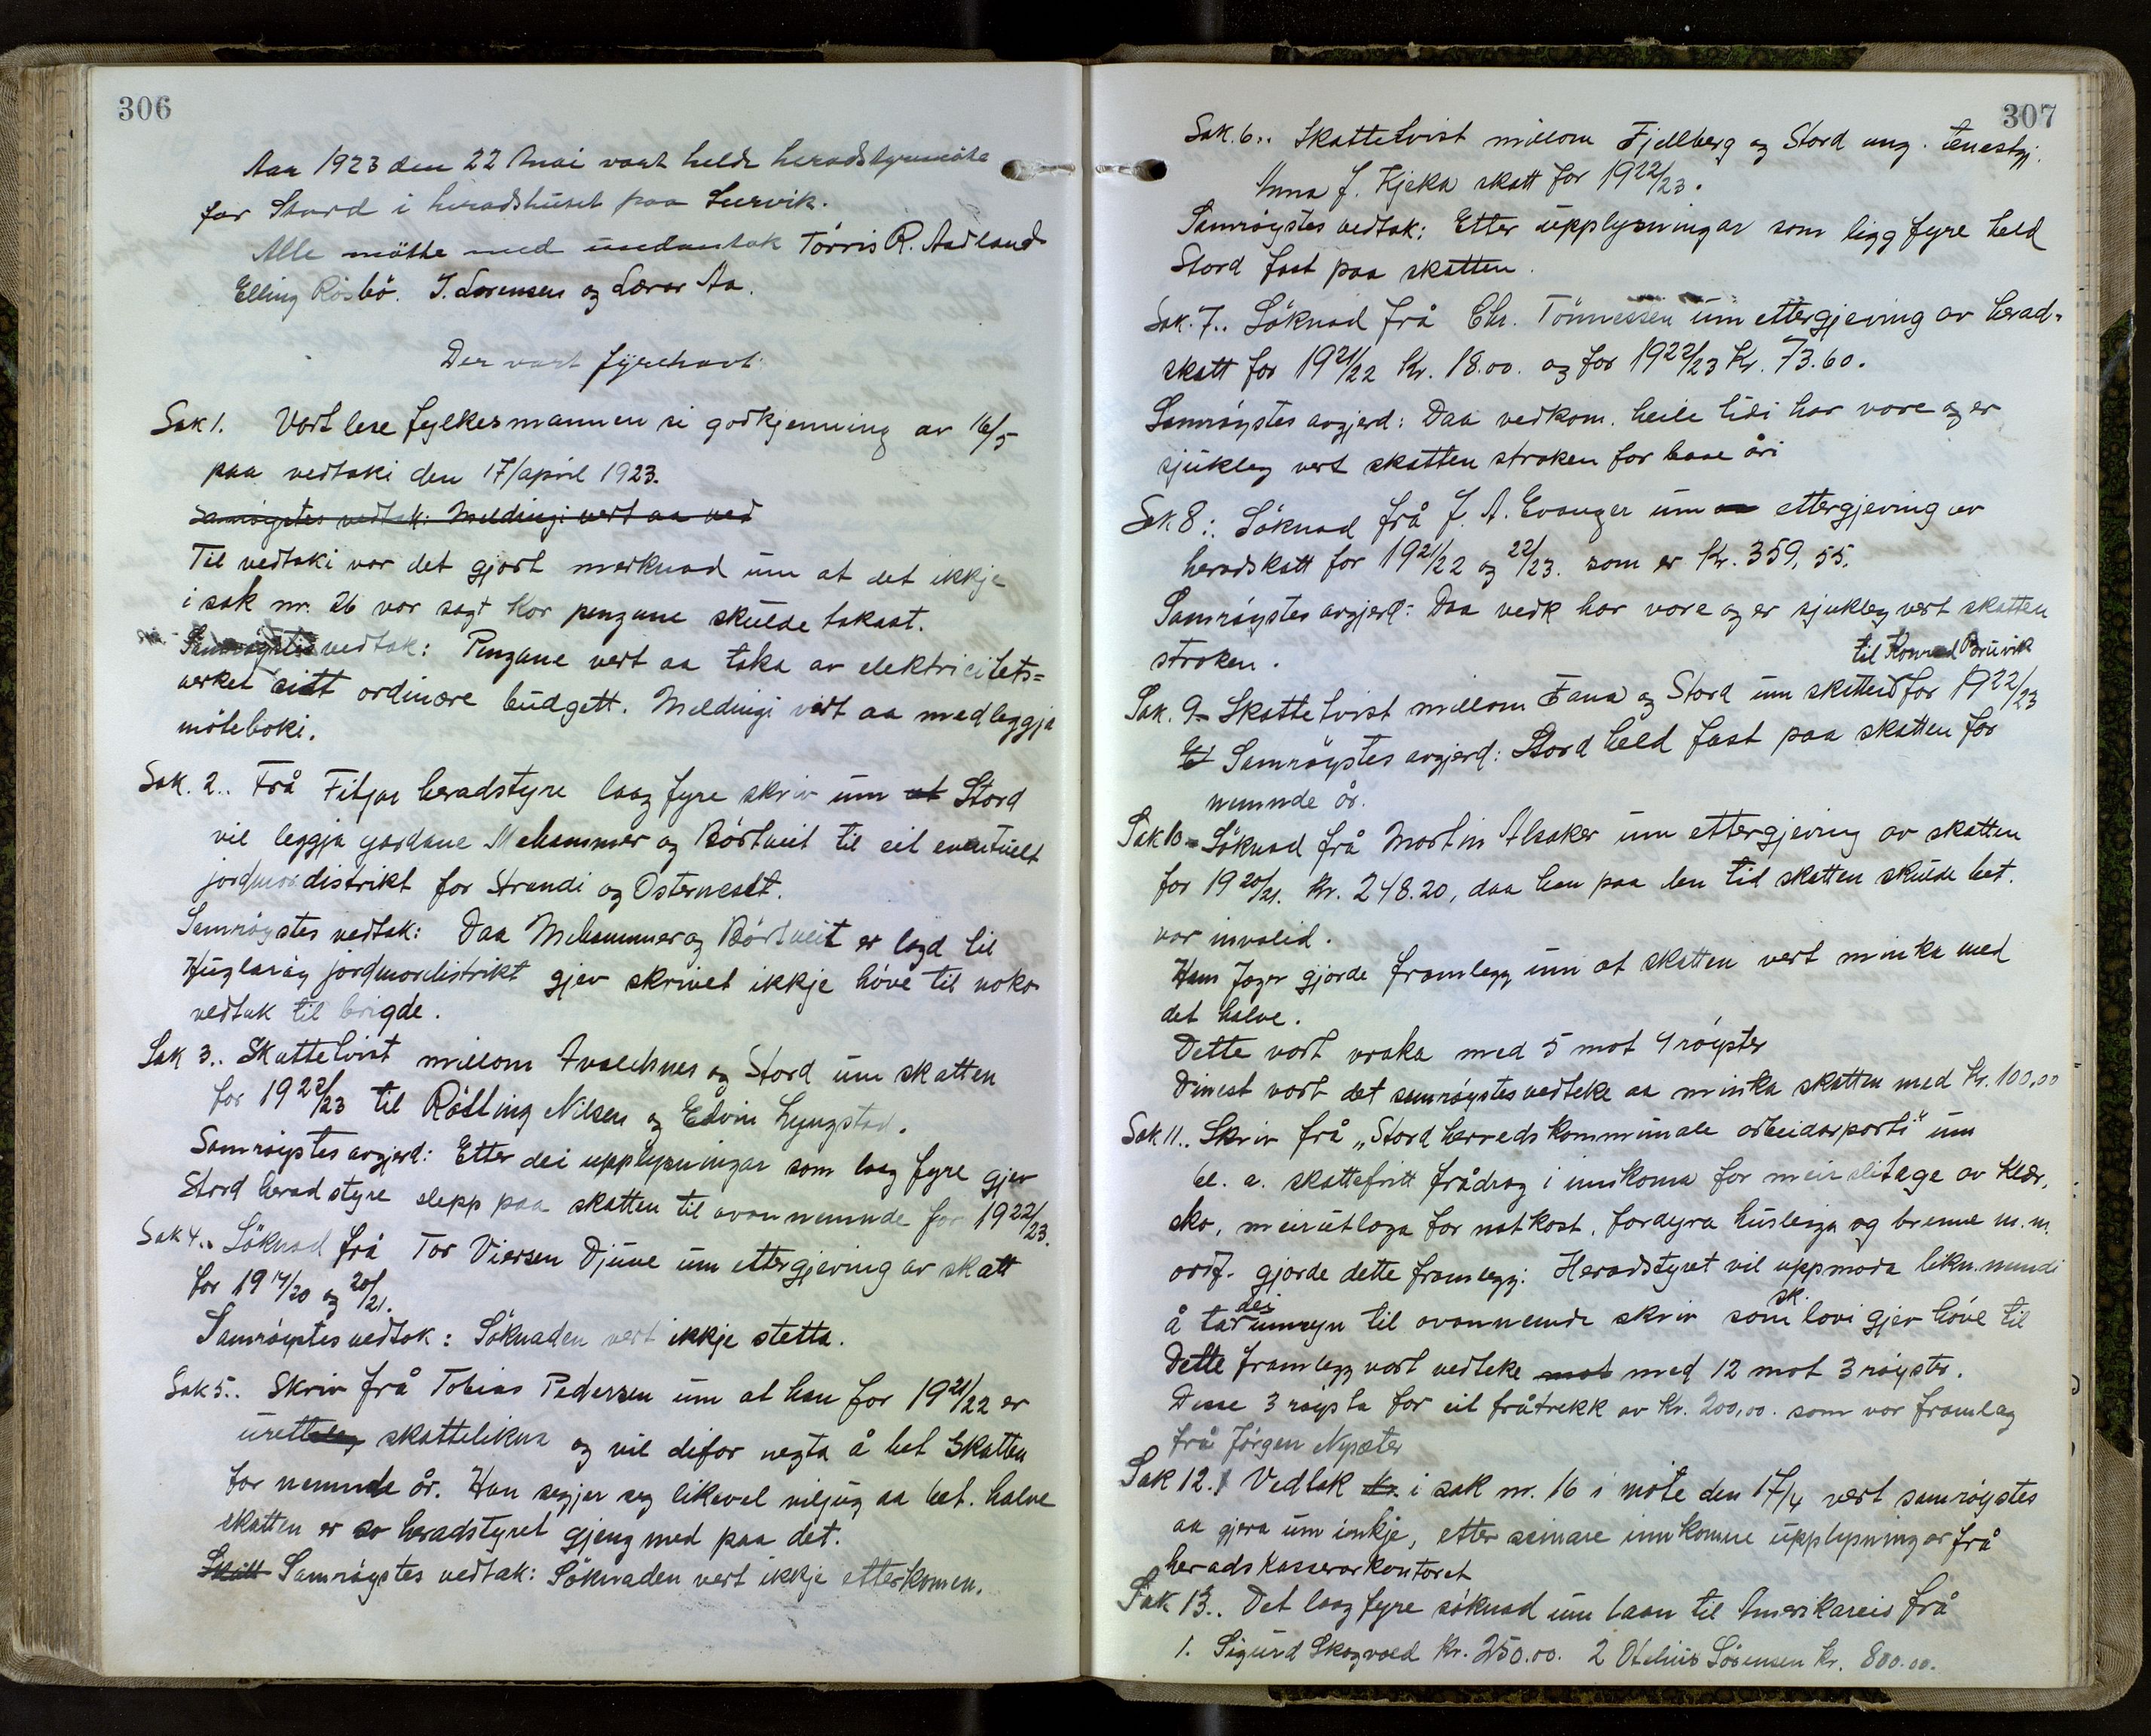 306
Aar 1923 den 22 Mai vart helde heradstyremöte
for Stord i heradshuset paa Leervik.
Alle mötte med undantak Törris R. Aadland
Elling Rösbö. I. Lorensen og Lærar Aa.
Der vart fyrehavt:
Sak 1. Vart lese fylkesmannen si godkjenning av 16/5
paa vedtaki den 17/april 1923.
Samröystes vedtak: Meldingi vert aa ved
Til vedtaki var det gjort merknad um at det ikkje
i sak nr. 26 var sagt kor pengane skulde takast.
Samröystes vedtak: Pengane vert aa taka av elektricitets=
verket sitt ordinære budgett. Meldingi vert aa medleggja
möteboki.
Sak. 2.. Frå Fitjar heradstyre laag fyre skriv um at Stord
vil leggja gardane Mehammer og Börtveit til eit eventuelt
jordmordistrikt for Strandi og Osterneset.
Samröystes vedtak: Daa Mehammer og Börtveit er lagd til
Huglaröy jordmordistrikt gjev skrivet ikkje höve til noko
vedtak til brigde.
Sak 3.. Skattetvist millom Avaldsnes og Stord um skatten
for 1922/23 til Rölling Nilsen og Edvin Lyngstad.
Samröystes avgjerd: Etter dei upplysningar som laag fyre gjev
Stord heradstyre slepp paa skatten til ovannemnde for 1922/23.
Sak 4.. Söknad frå Tor Viersen Djuve um ettergjeving av skatt
for 1919/20 og 20/21.
Samröystes vedtak: Söknaden vert ikkje stetta.
Sak 5.. Skriv frå Tobias Pedersen um at han for 1921/22 er
urettleg skattelikna og vil difor negta å bet skatten
for nemnde år. Han segjer seg likevel viljug aa bet. halve
skatten er so heradstyret gjeng med paa det.
Skatt Samröystes vedtak: Söknaden vert ikkje etterkomen.
307
Sak. 6.. Skattetvist millom Fjellberg og Stord ang. tenestgj.
Anna J. Kjeka skatt for 1922/23.
Samröystes vedtak: Etter upplysningar som ligg fyre held
Stord fast paa skatten.
Sak. 7.. Söknad frå Chr. Tönnessen um ettergjeving av herad-
skatt for 1921/22 Kr. 18.00. og for 1922/23 Kr. 73.60.
Samröystes avgjerd: Daa vedkom. heile tidi har vore og er
sjukleg vert skatten stroken for baae åri
Sak 8:. Söknad frå J. A. Evanger um ettergjeving av
heradskatt for 1921/22 og 22/23. som er Kr. 359,55.
Samröystes avgjerd: Daa vedk har vore og er sjukleg vert skatten
stroken.
til Konrad Bruvik
Sak. 9- Skattetvist millom Fana og Stord um skatten for 1922/23
Samröystes avgjerd: Stord held fast paa skatten for
nemnde år.
Sak 10- Söknad frå Martin Alsaker um ettergjeving av skatten
for 1920/21. Kr. 248.20, daa han paa den tid skatten skulde bet.
var invalid.
Hans Jager gjorde framlegg um at skatten vert minka med
det halve.
Dette vart vraka med 5 mot 4 röyster
Dinest vart det samröystes vedteke aa minka skatten med Kr. 100,00
Sak 11.. Skriv frå „Stord herreds kommunale arbeidarparti" um
bl. a. skattefritt frådrag i innkoma for meirslitage av klær,
sko, meirutlaga for natkost, fordyra husleiga og brenne m.m.
ordf. gjorde dette framlegg: Heradstyret vil uppmoda likn.nemndi
å ta dei umsyn til ovannemnde skriv som sk. lovi gjev höve til
Dette framlegg vart vedteke mot med 12 mot 3 röyster.
Desse 3 röysta for eit fråtrekk av Kr. 200,00. som var framlag
frå Jörgen Nysæter
Sak 12. Vedtak i sak nr. 16 i möte den 17/4 vert samröystes
aa gjera um inkje, etter seinare innkomne upplysningar frå
heradskasserarkontoret
Sak 13.. Det laag fyre söknad um laan til Amerikareis frå
1. Sigurd Skogvold Kr. 250.00. 2 Otelius Sörensen Kr. 800.00.